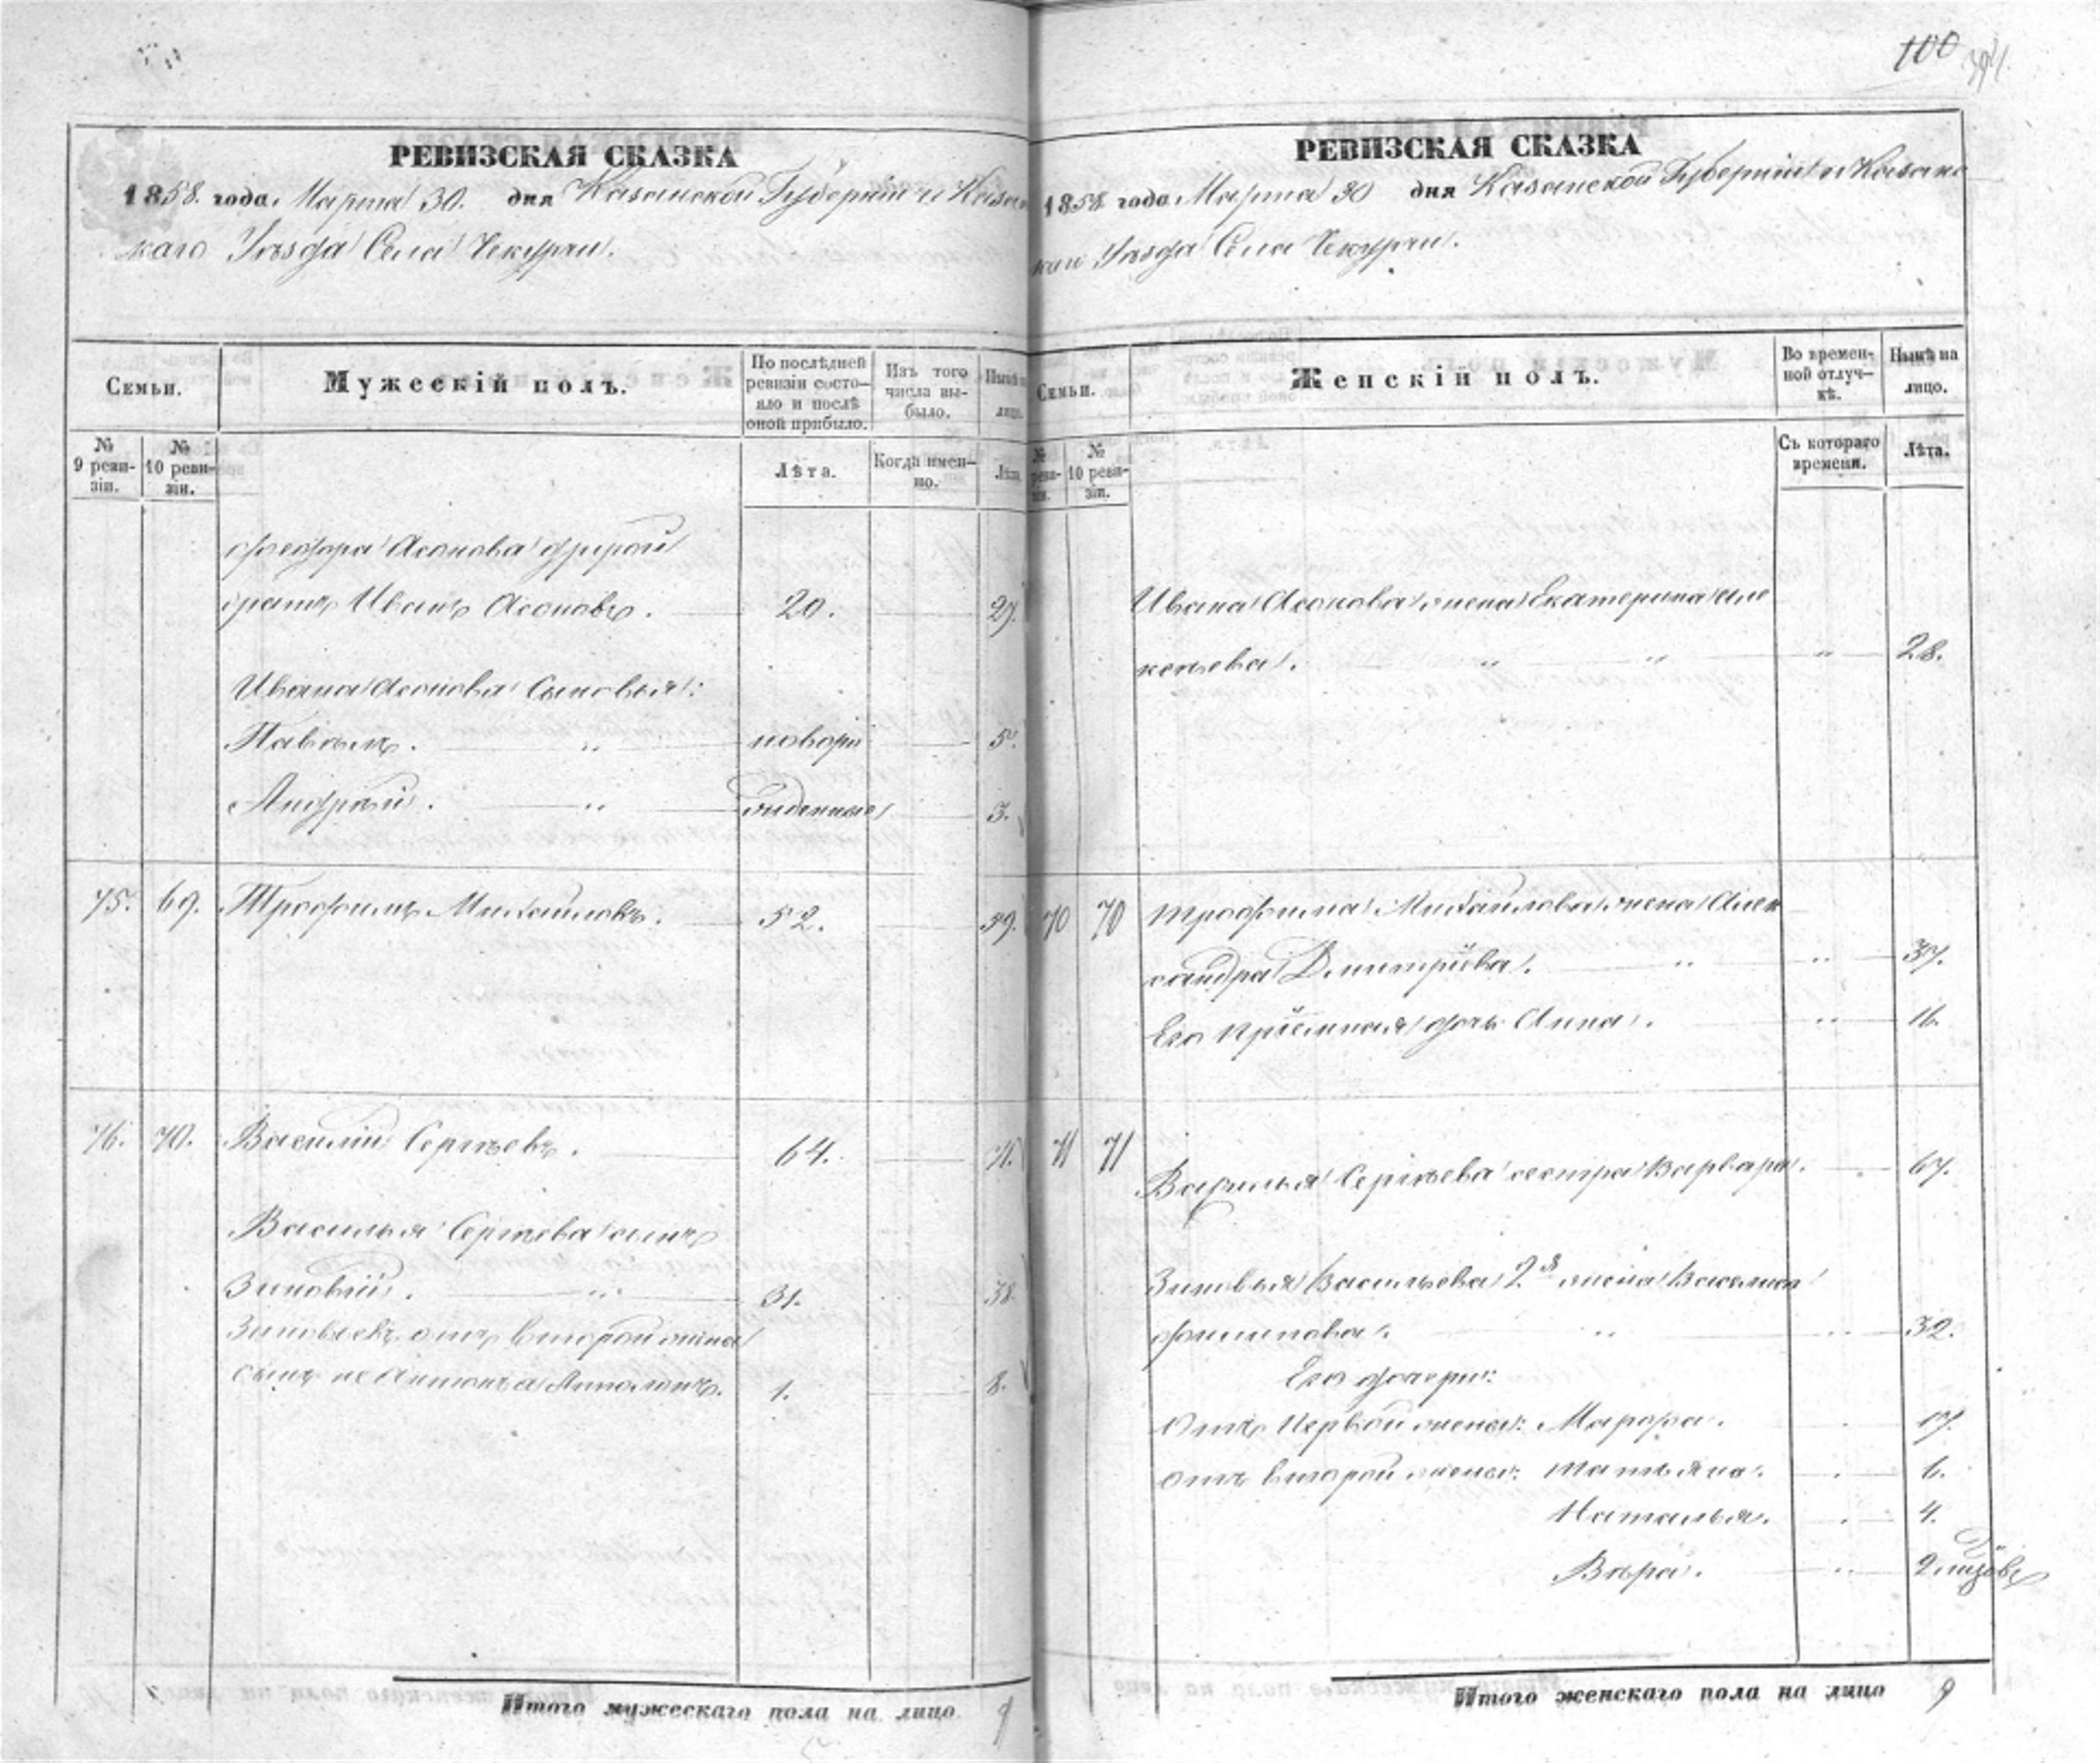 РЕВИЗСКАЯ СКАЗКА
1858. года Марта 30. дня Казанской Губернiи и Казан
скаго Уѣзда Села Чекурчи.
Семьи.
Мужескiй полъ.
По послѣдней ревизiи состо-яло и послѣ оной прибыло.
Изъ того числа вы-было.
Нынѣ на лицо.
№ 9 реви-зiи.
№ 10 реви-зiи.
Лѣта.
Когда имен-но.
Лѣта.
Федора Асонова другой
братъ Иванъ Асоновъ. 20. 27.
Ивана Асонова Сыновья:
Павелъ. " новорж 5.
Андрей. " жденные 3.
75. 69. Трофимъ Михайловъ. 52. 59.
76. 70. Василiй Сергѣевъ. 64. 71.
Василья Сергѣева сынъ
Зиновiй. " 31. 38.
Зиновьевъ отъ второй жены
сынъ не Антонъ а Антонинъ. 1. 8.
Итого мужескаго пола на лицо 9
100
РЕВИЗСКАЯ СКАЗКА
1858 года Марта 30 дня Казанской Губернiи и Казанс
каго Уѣзда Села Чекурчи.
Семьи.
Женскiй полъ.
Во времен-ной отлуч-кѣ.
Нынѣ на лицо.
№ реви-зiи.
№ 10 реви-зiи.
Съ котораго времени.
Лѣта.
Ивана Асонова жена Екатерина Але
ксѣева. " " " 28.
70 70 Трофима Михайлова жена Алек
сандра Дмитрiева. " " 37.
Его прiемная дочь Анна. " 16.
71 71 Василья Сергѣева сестра Варвара. 67.
Зиновья Васильева 2я жена Василиса
Филипова. " " 32.
Его дочери:
Отъ Первой жены: Марфа. 17.
отъ второй жены: Татьяна. 6.
Наталья. 4.
Вѣра. " 2 мцовъ
Итого женскаго пола на лицо 9